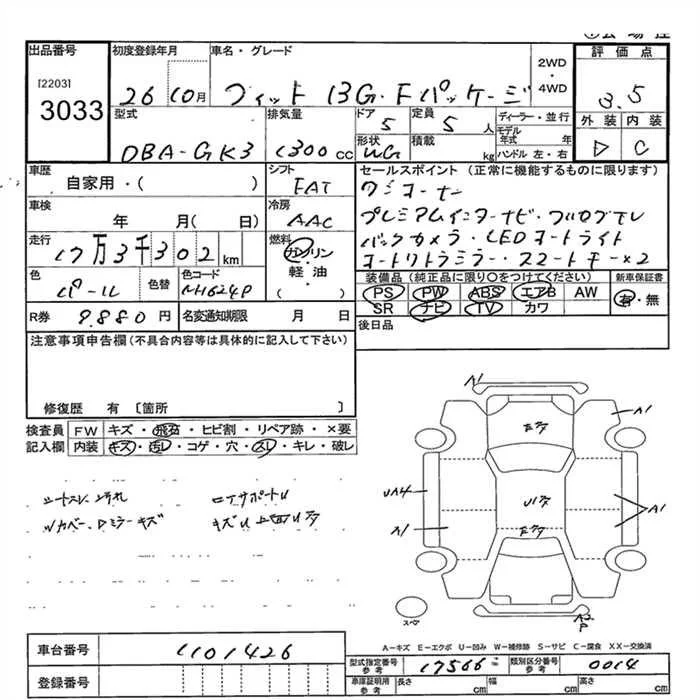 出品番号 初度登録年月 車名・グレード 2WD・4WD 評価点
[2203]
3033
26 10月 フィット 13G・Fパッケージ 3.5
型式 排気量 ドア 定員 ディーラー・並行 外装 内装
DBA-GK3 1300 CC 5 5 人 モデル年式 年 D C
形状 積載 kg ハンドル 左・右
車歴 シフト セールスポイント (正常に機能するものに限ります)
自家用・( ) FAT ワンオーナー
車検 冷房 プレミアムインターナビ・フルセグTV
年 月( 日) AAC バックカメラ・LEDオートライト
走行 17万3千302 km 燃料 ガソリン 軽油 ( ) オートリトラミラー・スマートキー×2
色 パール 色替 色コード NH624P
装備品 (純正品に限り○をつけてください) 新車保証書
PS PW ABS エアB AW 有・無
SR ナビ TV カワ
R券 9.880 円 名変通知期限 月 日 後日品
注意事項申告欄 (不具合内容等は具体的に記入して下さい)
修復歴 有 [箇所 ]
検査員記入欄 FW キズ・飛石・ヒビ割・リペア跡・×要
内装 キズ・汚レ・コゲ・穴・スレ・キレ・破レ
A1
A1
UA4
A1
A1
A2
P
スペア
A-キズ E-エクボ U-凹み W-補修跡 S-サビ C-腐食 XX-交換済
車台番号 1101426 型式指定番号 参考 17566 類別区分番号 参考 0014
登録番号 車庫証明用 参考 長さ cm 幅 cm 高さ cm